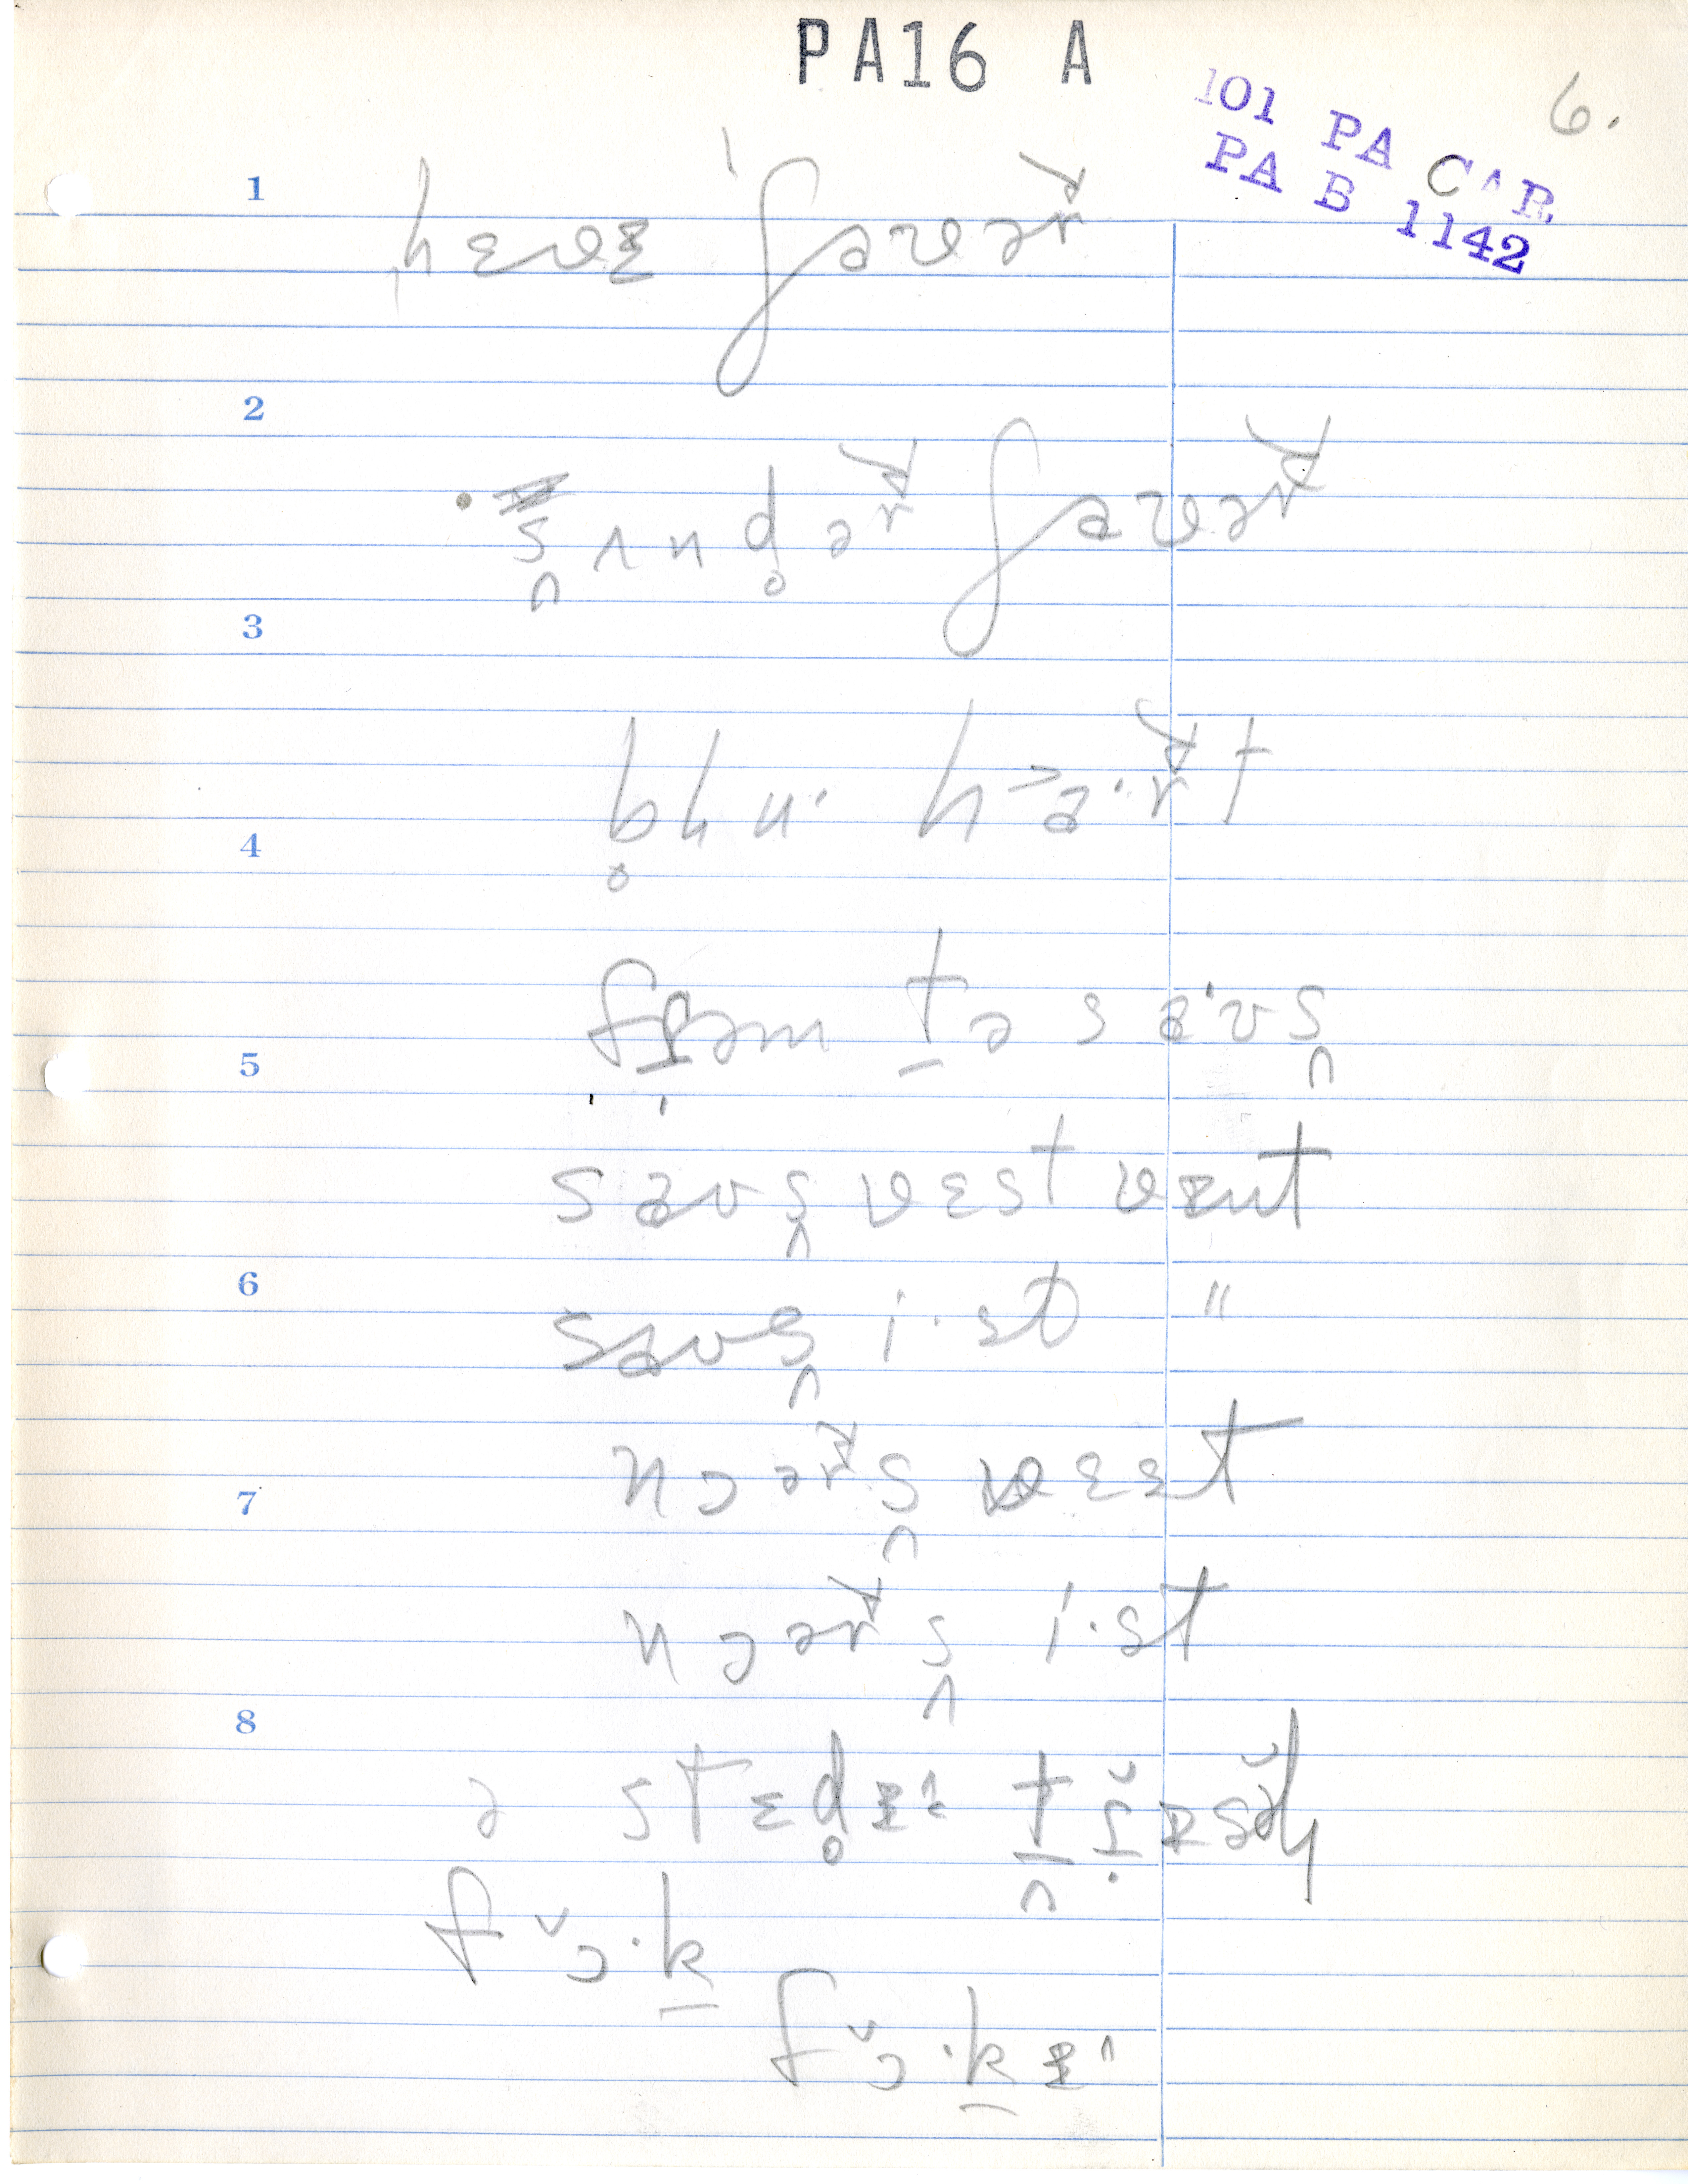 PA16 A
101 PA CAR
PA B 1142
6.
1
hɛvɪ ˈʃaʊəʳ
2
s̬ʌnd̥əʳ ʃaʊəʳ
3
b̥lu· ha·ʳt
4
frəm t̠ə saˑʊs̬
5
saʊs̬ vɛst vɪnt
6
saʊs̬ i·st "
7
nɔəʳs̬ vɛst
nɔəʳs̬ i·st
8
ə stɛd̥ɪ t̠ɹɪsəl
fɔ·k̠
fɔ·k̠ɪ